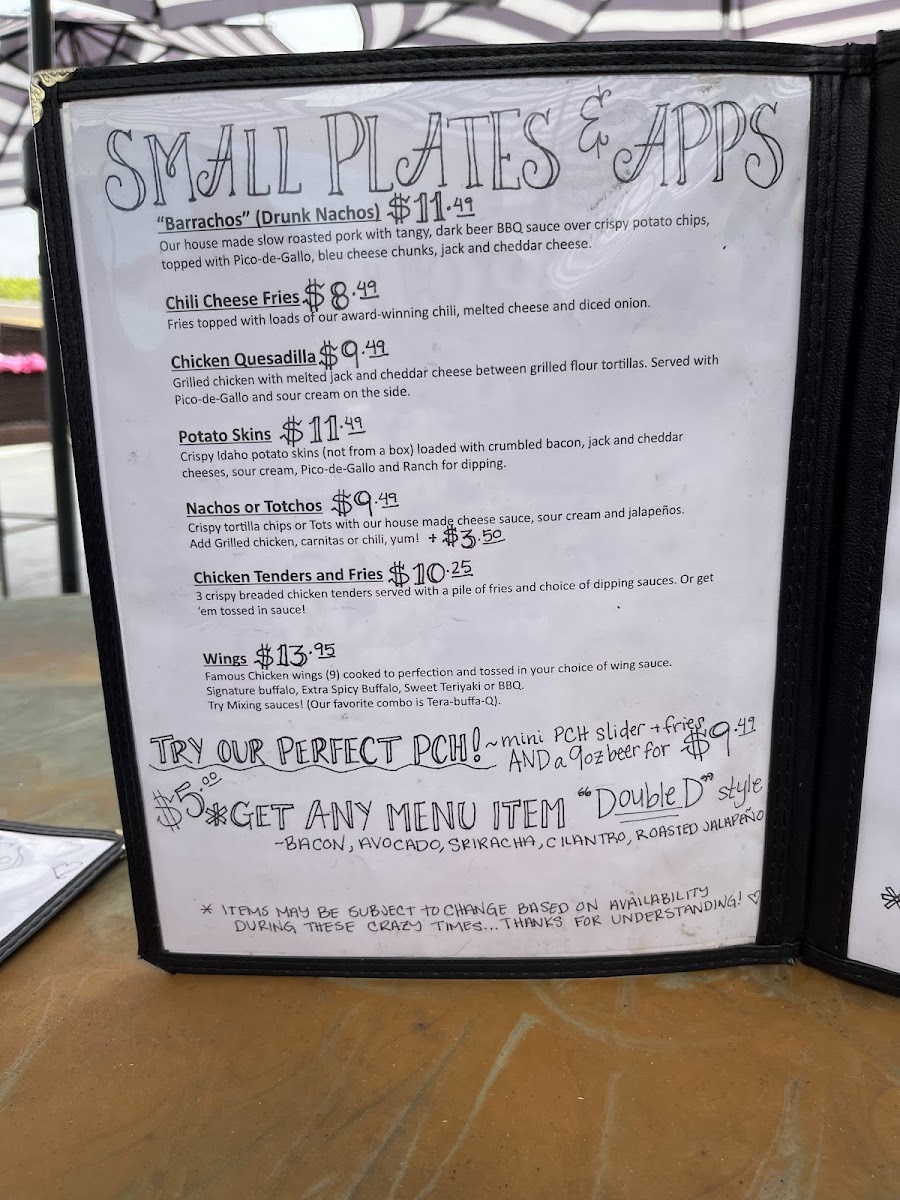 SMALL PLATES & APPS
"Barrachos" (Drunk Nachos) $11.49
Our house made slow roasted pork with tangy, dark beer BBQ sauce over crispy potato chips,
topped with Pico-de-Gallo, bleu cheese chunks, jack and cheddar cheese.
Chili Cheese Fries $8.49
Fries topped with loads of our award-winning chili, melted cheese and diced onion.
Chicken Quesadilla $9.49
Grilled chicken with melted jack and cheddar cheese between grilled flour tortillas. Served with
Pico-de-Gallo and sour cream on the side.
Potato Skins $11.49
Crispy Idaho potato skins (not from a box) loaded with crumbled bacon, jack and cheddar
cheeses, sour cream, Pico-de-Gallo and Ranch for dipping.
Nachos or Totchos $9.49
Crispy tortilla chips or Tots with our house made cheese sauce, sour cream and jalapeños.
Add Grilled chicken, carnitas or chili, yum! + $3.50
Chicken Tenders and Fries $10.25
3 crispy breaded chicken tenders served with a pile of fries and choice of dipping sauces. Or get
'em tossed in sauce!
Wings $13.95
Famous Chicken wings (9) cooked to perfection and tossed in your choice of wing sauce.
Signature buffalo, Extra Spicy Buffalo, Sweet Teriyaki or BBQ.
Try Mixing sauces! (Our favorite combo is Tera-buffa-Q).
TRY OUR PERFECT PCH! ~ mini PCH slider + fries
AND a 9oz beer for $9.49
$5.00 *GET ANY MENU ITEM "Double D" style
~BACON, AVOCADO, SRIRACHA, CILANTRO, ROASTED JALAPEÑO
* ITEMS MAY BE SUBJECT TO CHANGE BASED ON AVAILABILITY
DURING THESE CRAZY TIMES... THANKS FOR UNDERSTANDING! ♡